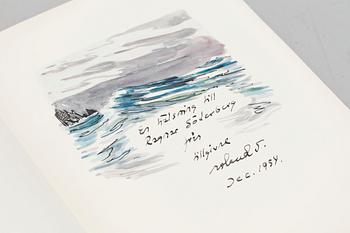 En hälsning till
Ragnar Söderberg
från
tillgivne
Roland S.
Dec. 1954.